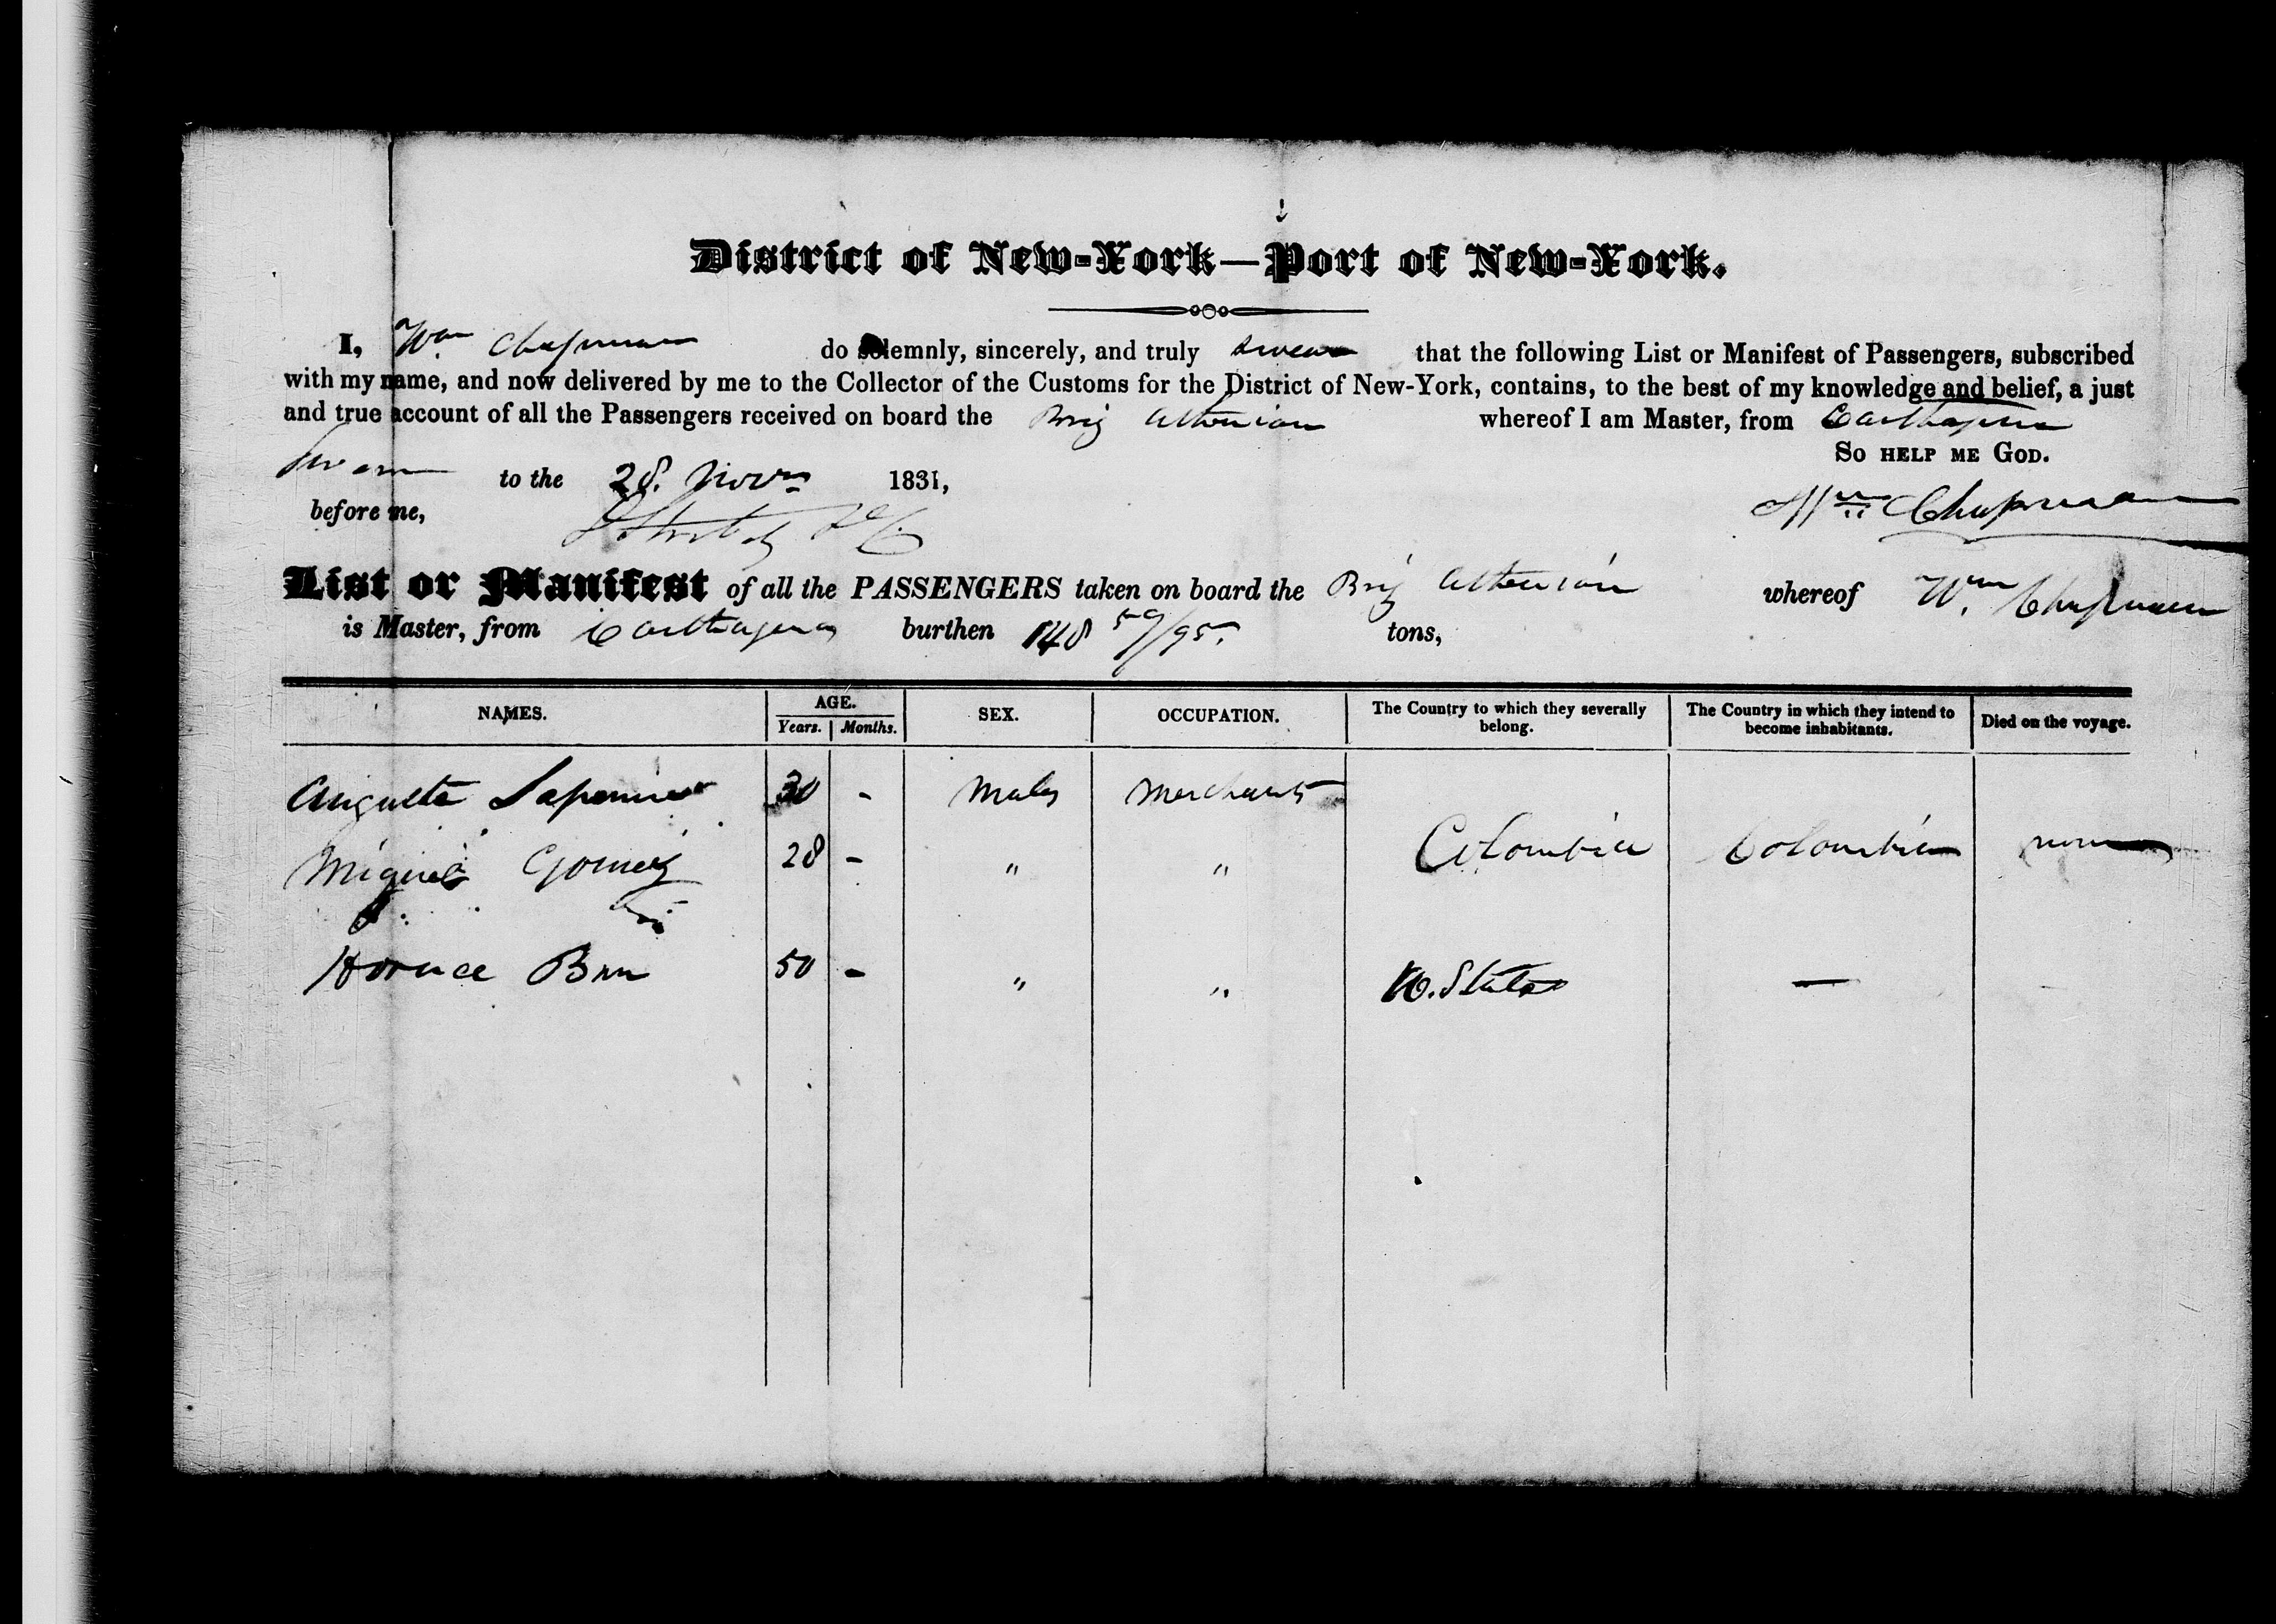 District of New-York—Port of New-York.
I, Wm Chapman do solemnly, sincerely, and truly swear that the following List or Manifest of Passengers, subscribed
with my name, and now delivered by me to the Collector of the Customs for the District of New-York, contains, to the best of my knowledge and belief, a just
and true account of all the Passengers received on board the Brig Athenian whereof I am Master, from Carthagena
So help me God.
Sworn to the 28. Novr 1831,
before me,
Wm Chapman
List or Manifest of all the PASSENGERS taken on board the Brig Athenian whereof Wm Chapman
is Master, from Carthagena burthen 148 /95. tons,
NAMES. AGE. SEX. OCCUPATION. The Country to which they severally belong. The Country in which they intend to become inhabitants. Died on the voyage.
Years. Months.
30 - Males Merchants
Miguel Gomez 28 - " " Colombia Colombia none
Horace 50 - " " U. States —